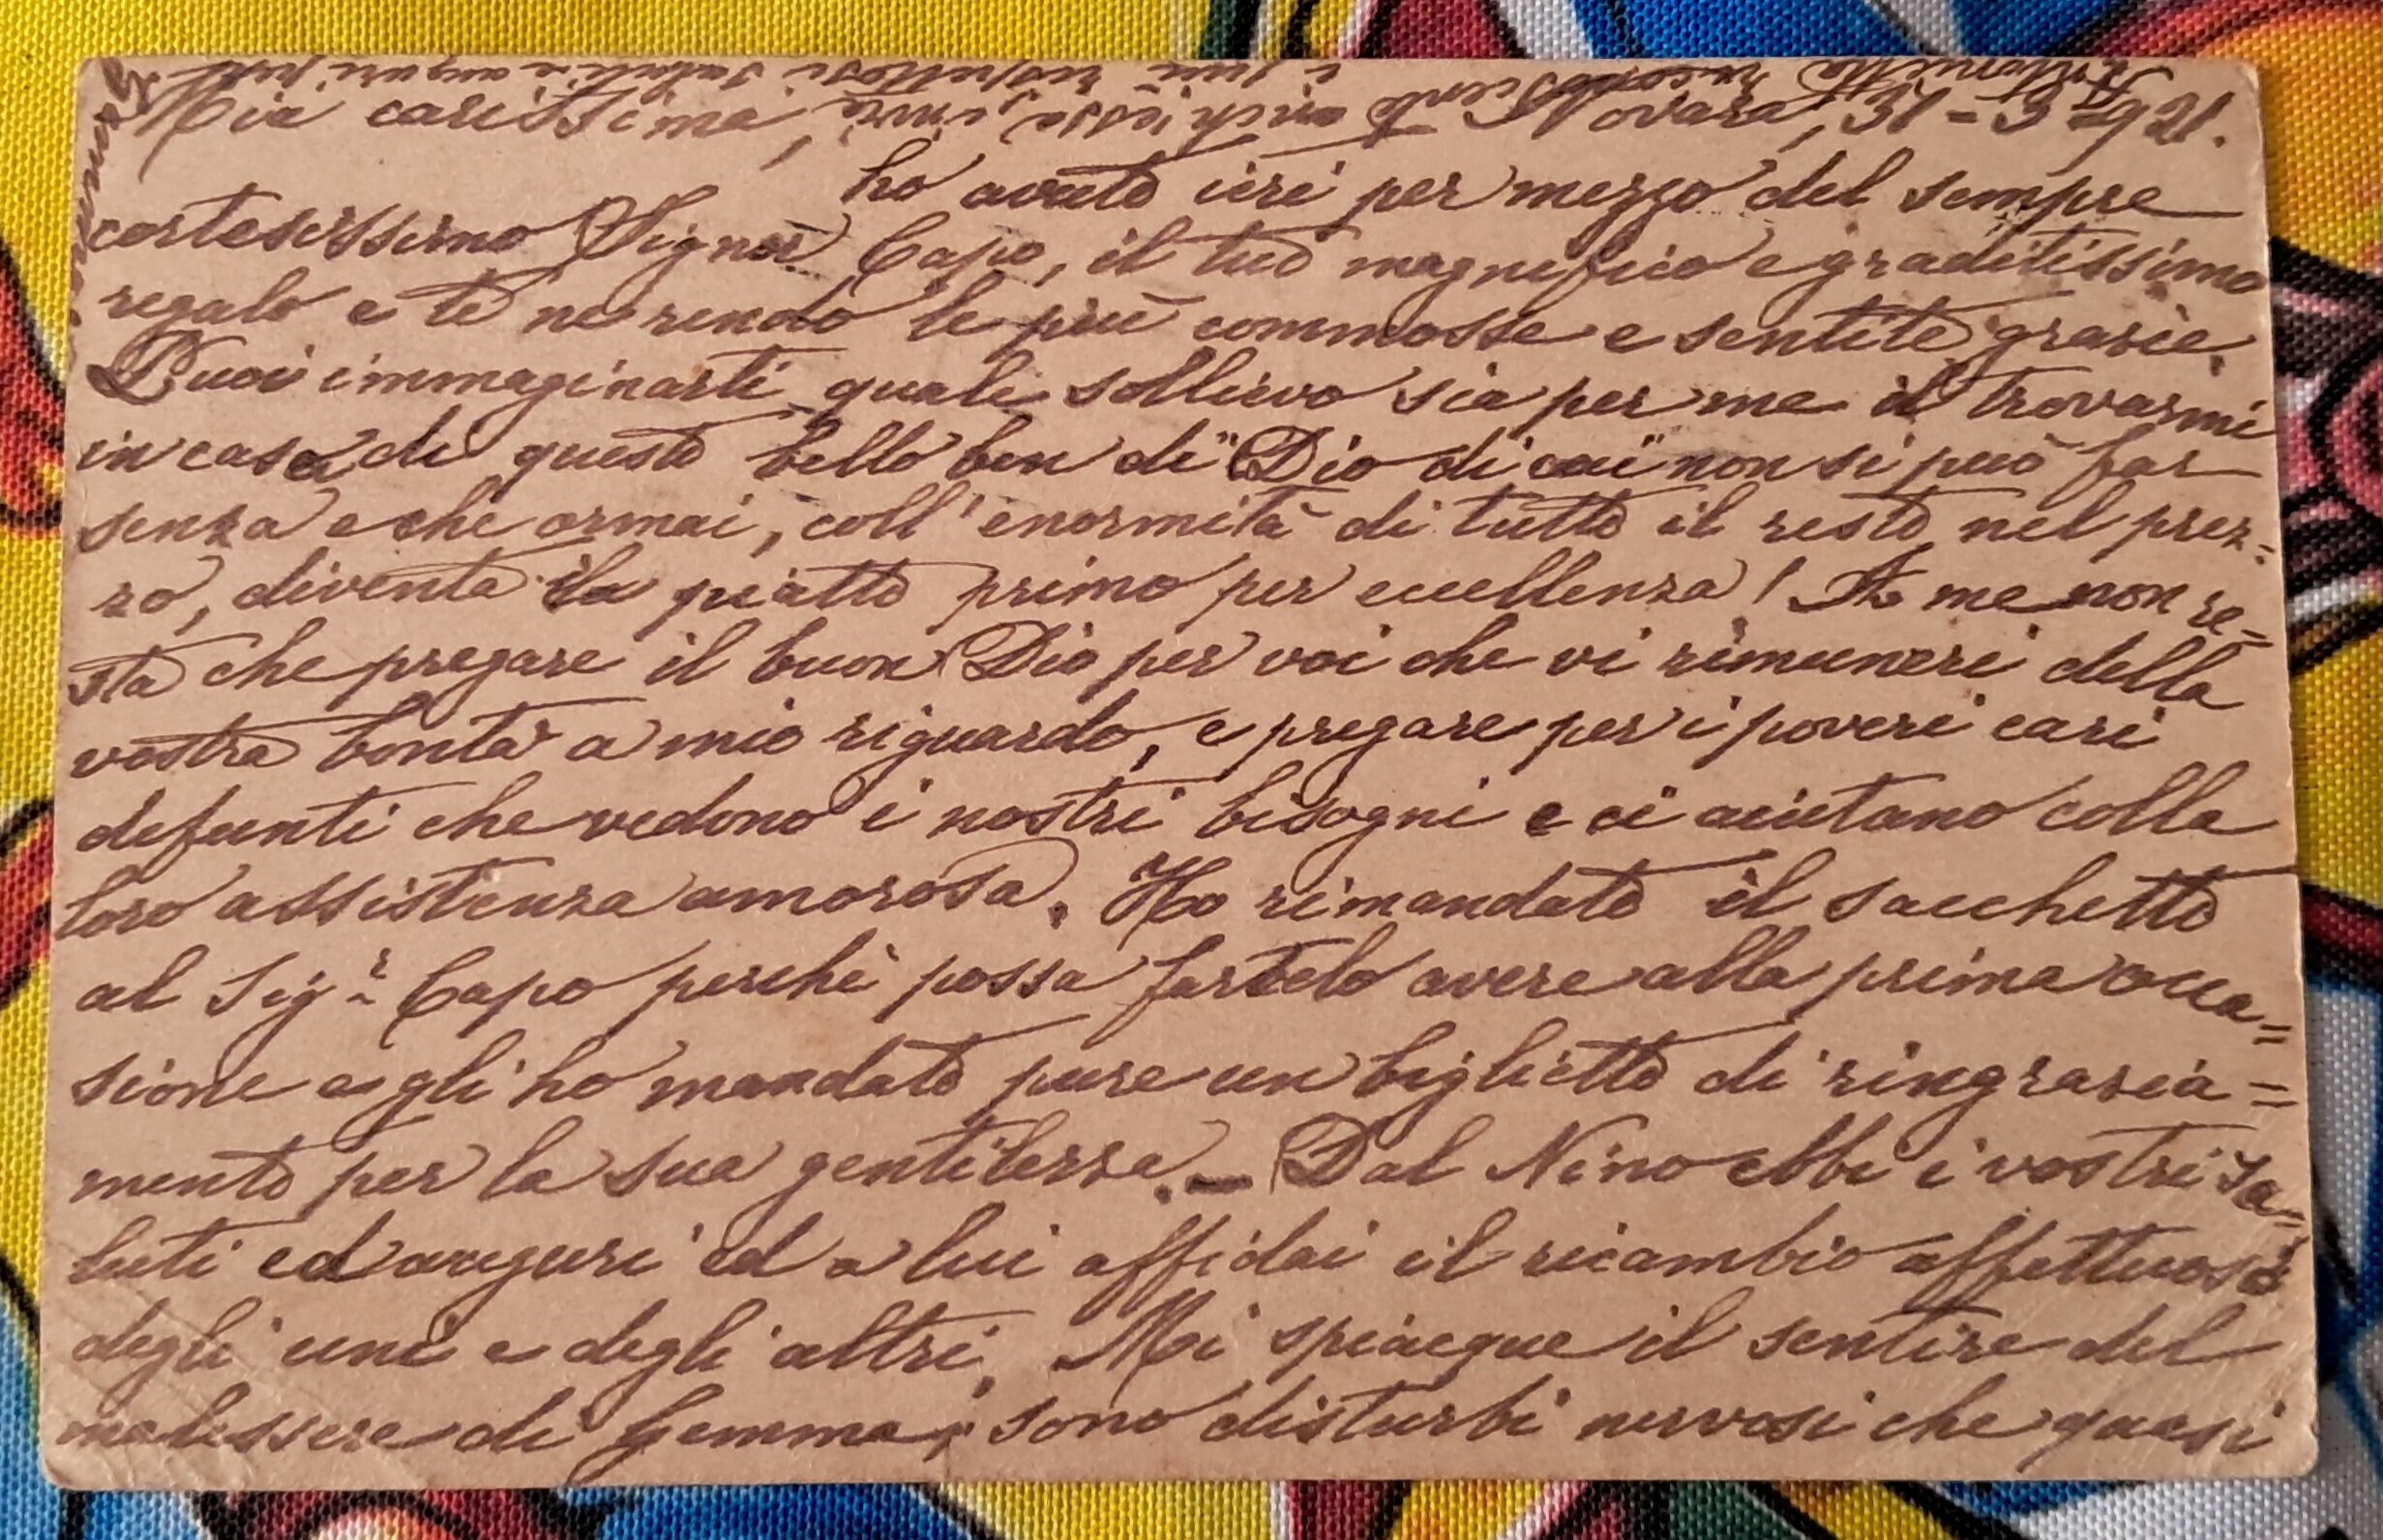 Mia carissima, Novara, 31-3-921.
ho avuto ieri per mezzo del sempre
cortesissimo Signor Capo, il tuo magnifico e graditissimo
regalo e te ne rendo le più commosse e sentite grazie.
Puoi immaginarti quale sollievo sia per me il trovarmi
in casa di questo bello ben di "Dio di cui" non si può far
senza e che ormai, coll'enormità di tutto il resto nel prez-
zo, diventa il piatto primo per eccellenza! A me non re-
sta che pregare il buon Dio per voi che vi rimuneri della
vostra bontà a mio riguardo, e pregare per i poveri cari
defunti che vedono i nostri bisogni e ci aiutano colla
loro assistenza amorosa. Ho rimandato il sacchetto
al Sigr Capo perchè possa fartelo avere alla prima occa=
sione e gli ho mandato pure un biglietto di ringrazia=
mento per la sua gentilezza. - Dal Nino ebbi i vostri sa=
luti ed auguri ed a lui affidai il ricambio affettuoso
degli uni e degli altri. Mi spiacque il sentire del
malessere di Gemma; sono disturbi nervosi che quasi
Antonietta riconoscente anch'essa, invia
i suoi rispettosi saluti e auguri